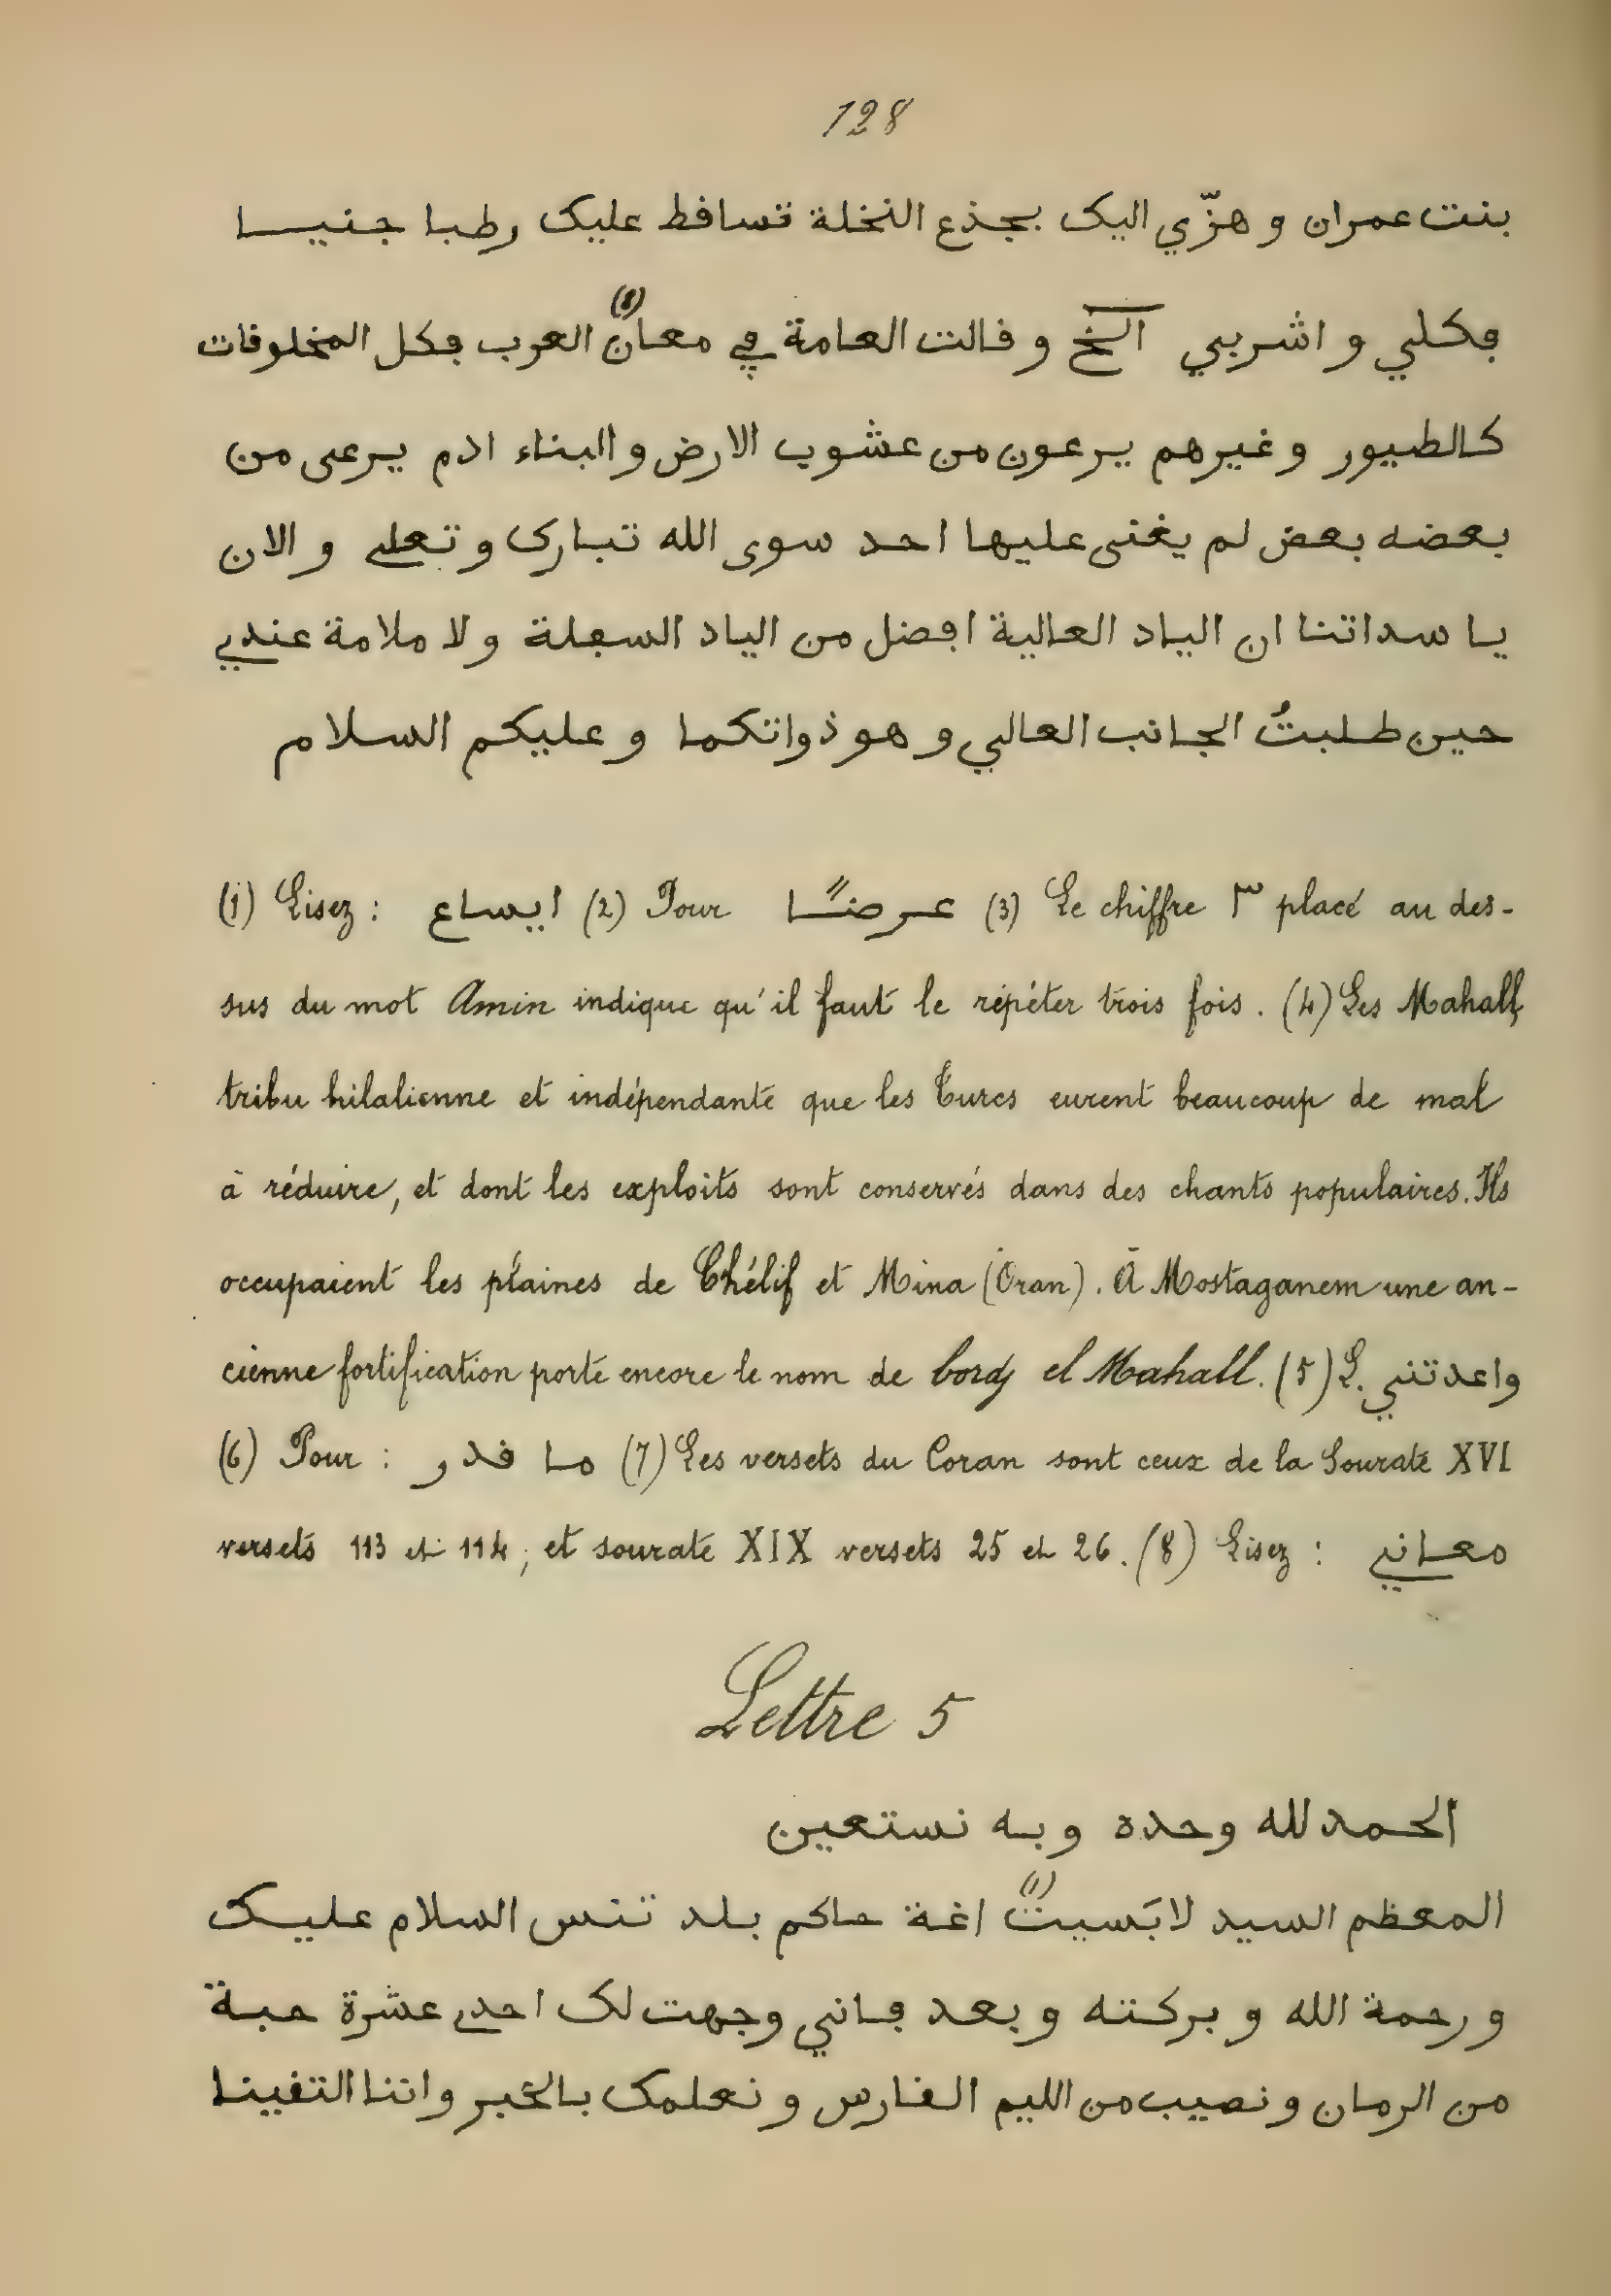 128
بنت عمران و هزّي اليك بجذع النخلة تساقط عليك رطبا جنيا
فكلي و اشربي الخ و قالت العامة في معانٍ (8) العرب فكل المخلوقات
كالطيور و غيرهم يرعون من عشوب الارض و البناء ادم يرعى من
بعضه بعض لم يغنى عليها احد سوى الله تبارك و تعلى و الان
يا سداتنا ان الياد العالية افضل من الياد السفلة و لا ملامة عندي
حين طلبتُ الجانب العالي و هو ذواتكما و عليكم السلام
(1) Lisez : ايساع (2) Pour عرضًا (3) Le chiffre ٣ placé au des-
sus du mot Amin indique qu'il faut le répéter trois fois. (4) Les Mahall,
tribu hilalienne et indépendante que les Turcs eurent beaucoup de mal
à réduire, et dont les exploits sont conservés dans des chants populaires. Ils
occupaient les plaines de Chélif et Mina (Oran). À Mostaganem une an-
cienne fortification porte encore le nom de bordj el Mahall. (5) L. واعدتني
(6) Pour : ما قدر (7) Les versets du Coran sont ceux de la Sourate XVI
versets 113 et 114; et sourate XIX versets 25 et 26. (8) Lisez : معاني
Lettre 5
الحمد لله وحده و به نستعين
المعظم السيد لابَسيتْ (1) اغة حاكم بلد تنس السلام عليك
و رحمة الله و بركته و بعد فاني وجهت لك احدى عشرة حبة
من الرمان و نصيب من الليم القارس و نعلمك بالخبر و اننا التقينا